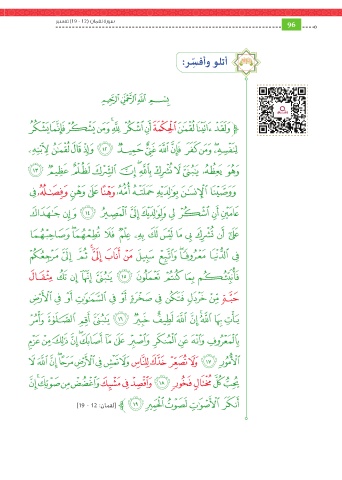 سورة لقمان (12 - 19) تفسير
96
أتلو وأفسر:
بِسْمِ اللَّهِ الرَّحْمَنِ الرَّحِيمِ
﴿ وَلَقَدْ ءَاتَيْنَا لُقْمَٰنَ ٱلْحِكْمَةَ أَنِ ٱشْكُرْ لِلَّهِ ۚ وَمَن يَشْكُرْ فَإِنَّمَا يَشْكُرُ
لِنَفْسِهِۦ ۖ وَمَن كَفَرَ فَإِنَّ ٱللَّهَ غَنِىٌّ حَمِيدٌ ۝١٢ وَإِذْ قَالَ لُقْمَٰنُ لِٱبْنِهِۦ
وَهُوَ يَعِظُهُۥ يَٰبُنَىَّ لَا تُشْرِكْ بِٱللَّهِ ۖ إِنَّ ٱلشِّرْكَ لَظُلْمٌ عَظِيمٌ ۝١٣
وَوَصَّيْنَا ٱلْإِنسَٰنَ بِوَٰلِدَيْهِ حَمَلَتْهُ أُمُّهُۥ وَهْنًا عَلَىٰ وَهْنٍ وَفِصَٰلُهُۥ فِى
عَامَيْنِ أَنِ ٱشْكُرْ لِى وَلِوَٰلِدَيْكَ إِلَىَّ ٱلْمَصِيرُ ۝١٤ وَإِن جَٰهَدَاكَ
عَلَىٰٓ أَن تُشْرِكَ بِى مَا لَيْسَ لَكَ بِهِۦ عِلْمٌ فَلَا تُطِعْهُمَا ۖ وَصَاحِبْهُمَا
فِى ٱلدُّنْيَا مَعْرُوفًا ۖ وَٱتَّبِعْ سَبِيلَ مَنْ أَنَابَ إِلَىَّ ۚ ثُمَّ إِلَىَّ مَرْجِعُكُمْ
فَأُنَبِّئُكُم بِمَا كُنتُمْ تَعْمَلُونَ ۝١٥ يَٰبُنَىَّ إِنَّهَآ إِن تَكُ مِثْقَالَ
حَبَّةٍ مِّنْ خَرْدَلٍ فَتَكُن فِى صَخْرَةٍ أَوْ فِى ٱلسَّمَٰوَٰتِ أَوْ فِى ٱلْأَرْضِ
يَأْتِ بِهَا ٱللَّهُ ۚ إِنَّ ٱللَّهَ لَطِيفٌ خَبِيرٌ ۝١٦ يَٰبُنَىَّ أَقِمِ ٱلصَّلَوٰةَ وَأْمُرْ
بِٱلْمَعْرُوفِ وَٱنْهَ عَنِ ٱلْمُنكَرِ وَٱصْبِرْ عَلَىٰ مَآ أَصَابَكَ ۖ إِنَّ ذَٰلِكَ مِنْ عَزْمِ
ٱلْأُمُورِ ۝١٧ وَلَا تُصَعِّرْ خَدَّكَ لِلنَّاسِ وَلَا تَمْشِ فِى ٱلْأَرْضِ مَرَحًا ۖ إِنَّ ٱللَّهَ لَا
يُحِبُّ كُلَّ مُخْتَالٍ فَخُورٍ ۝١٨ وَٱقْصِدْ فِى مَشْيِكَ وَٱغْضُضْ مِن صَوْتِكَ ۚ إِنَّ
أَنكَرَ ٱلْأَصْوَٰتِ لَصَوْتُ ٱلْحَمِيرِ ۝١٩ ﴾ [لقمان: 12 - 19]